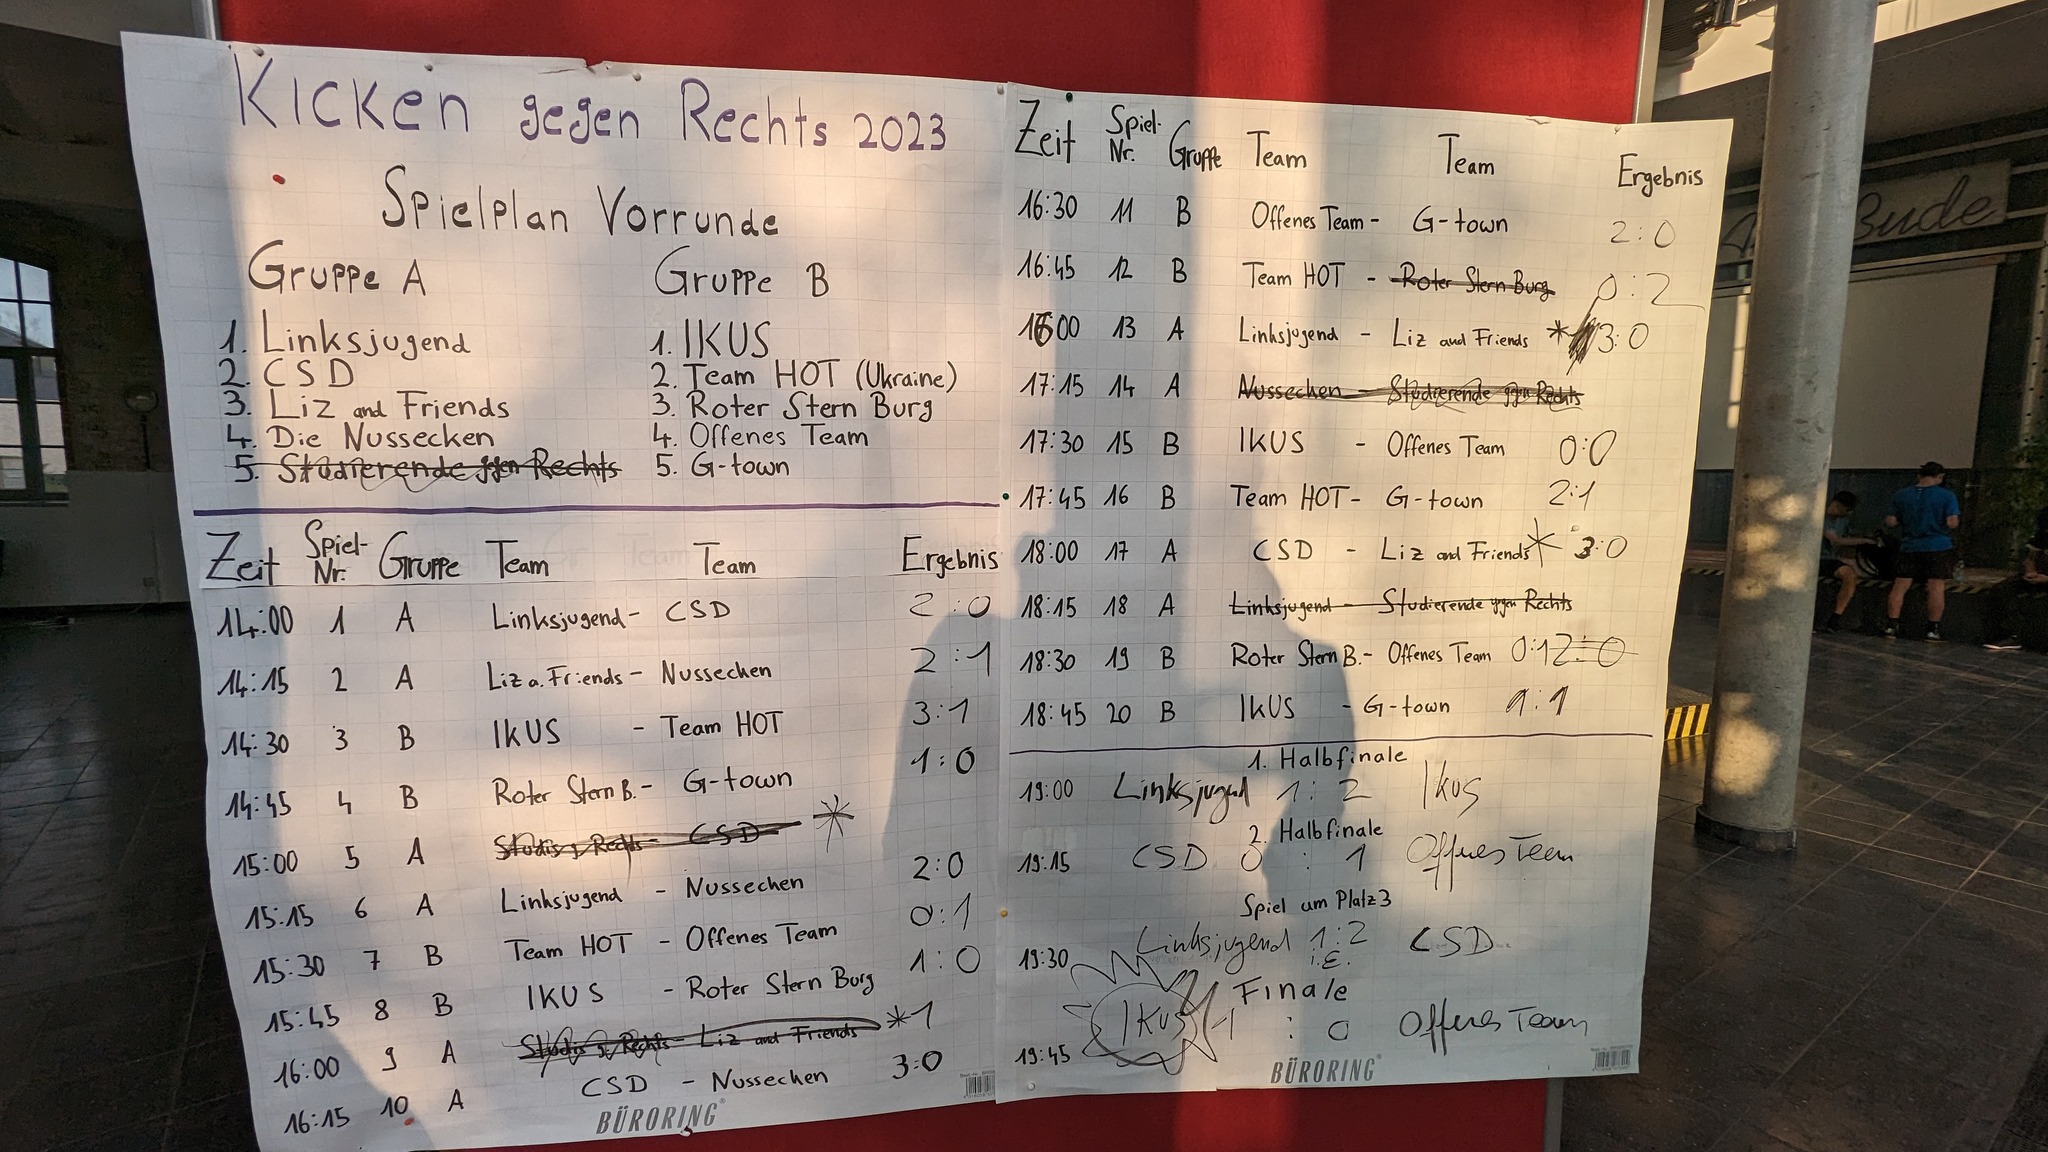 Kicken gegen Rechts 2023
Spielplan Vorrunde
Gruppe A
1. Linksjugend
2. CSD
3. Liz and Friends
4. Die Nussecken
5. Studierende gegen Rechts
Gruppe B
1. IKUS
2. Team HOT (Ukraine)
3. Roter Stern Burg
4. Offenes Team
5. G-town
Zeit Spiel-Nr. Gruppe Team Team Ergebnis
14:00 1 A Linksjugend - CSD 2:0
14:15 2 A Liz a. Friends - Nussecken 2:1
14:30 3 B IKUS - Team HOT 3:1
14:45 4 B Roter Stern B. - G-town 1:0
15:00 5 A Studis g. Rechts - CSD *
15:15 6 A Linksjugend - Nussecken 2:0
15:30 7 B Team HOT - Offenes Team 0:1
15:45 8 B IKUS - Roter Stern Burg 1:0
16:00 9 A Studis g. Rechts - Liz and Friends *1
16:15 10 A CSD - Nussecken 3:0
BÜRORING
Zeit Spiel-Nr. Gruppe Team Team Ergebnis
16:30 11 B Offenes Team - G-town 2:0
16:45 12 B Team HOT - Roter Stern Burg 0:2
13 A Linksjugend - Liz and Friends * 3:0
17:15 14 A Nussecken - Studierende gegen Rechts
17:30 15 B IKUS - Offenes Team 0:0
17:45 16 B Team HOT - G-town 2:1
18:00 17 A CSD - Liz and Friends * 3:0
18:15 18 A Linksjugend - Studierende gegen Rechts
18:30 19 B Roter Stern B. - Offenes Team 0:1 2:0
18:45 20 B IKUS - G-town 1:1
1. Halbfinale
19:00 Linksjugend 1:2 Ikus
2. Halbfinale
19:15 CSD 0:1 Offenes Team
Spiel um Platz 3
19:30 Linksjugend 1:2 CSD
i.E.
Finale
19:45 Ikus 1:0 Offenes Team
BÜRORING
Bude